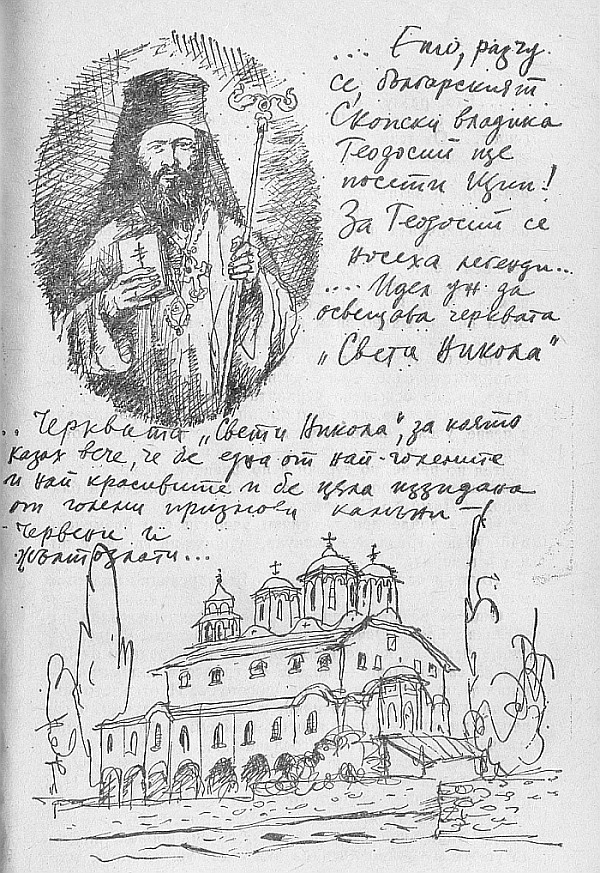 ... Ето, разчу
се, българският
Скопски владика
Теодосий ще
посети Щип!
За Теодосий се
носеха легенди...
.... Идел уж да
освещава черквата
„Свети Никола“
.. Черквата „Свети Никола“, за която
казах вече, че бе една от най-големите
и най красивите и бе цяла иззидана
от големи призмови камъни –
червени и
жълтозлати...